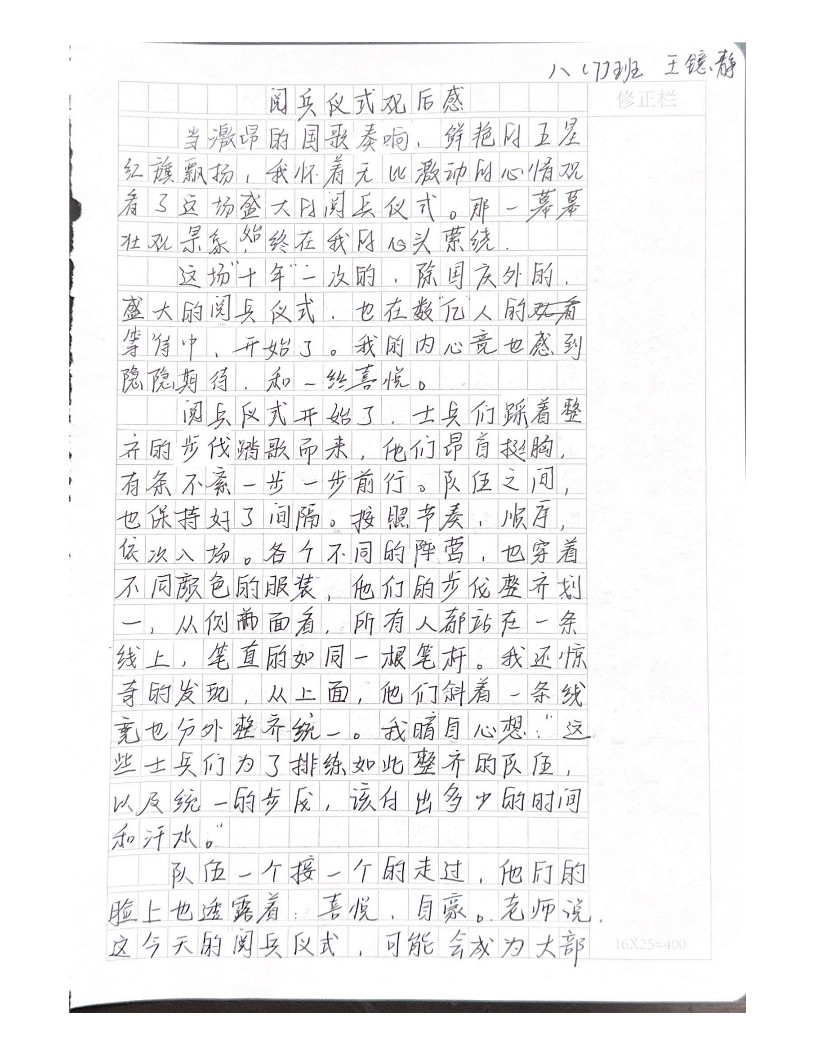 八(7)班 王镱静
修正栏
阅兵仪式观后感
当激昂的国歌奏响，鲜艳的五星
红旗飘扬，我怀着无比激动的心情观
看了这场盛大的阅兵仪式。那一幕幕
壮观景象，始终在我的心头萦绕.
这场"十年"一次的，除国庆外的，
盛大的阅兵仪式，也在数"亿"人的
等待中，开始了。我的内心竟也感到
隐隐期待，和一丝喜悦。
阅兵仪式开始了，士兵们踩着整
齐的步伐踏歌而来，他们昂首挺胸，
有条不紊一步一步前行。队伍之间，
也保持好了间隔。按照节奏，顺序，
依次入场。各个不同的阵营，也穿着
不同颜色的服装，他们的步伐整齐划
一，从侧面看，所有人都站在一条
线上，笔直的如同一根笔杆。我还惊
奇的发现，从上面，他们斜着一条线
竟也分外整齐统一。我暗自心想："这
些士兵们为了排练如此整齐的队伍，
以及统一的步伐，该付出多少的时间
和汗水。"
队伍一个接一个的走过，他们的
脸上也透露着：喜悦，自豪。老师说，
这今天的阅兵仪式，可能会成为大部
16X25=400